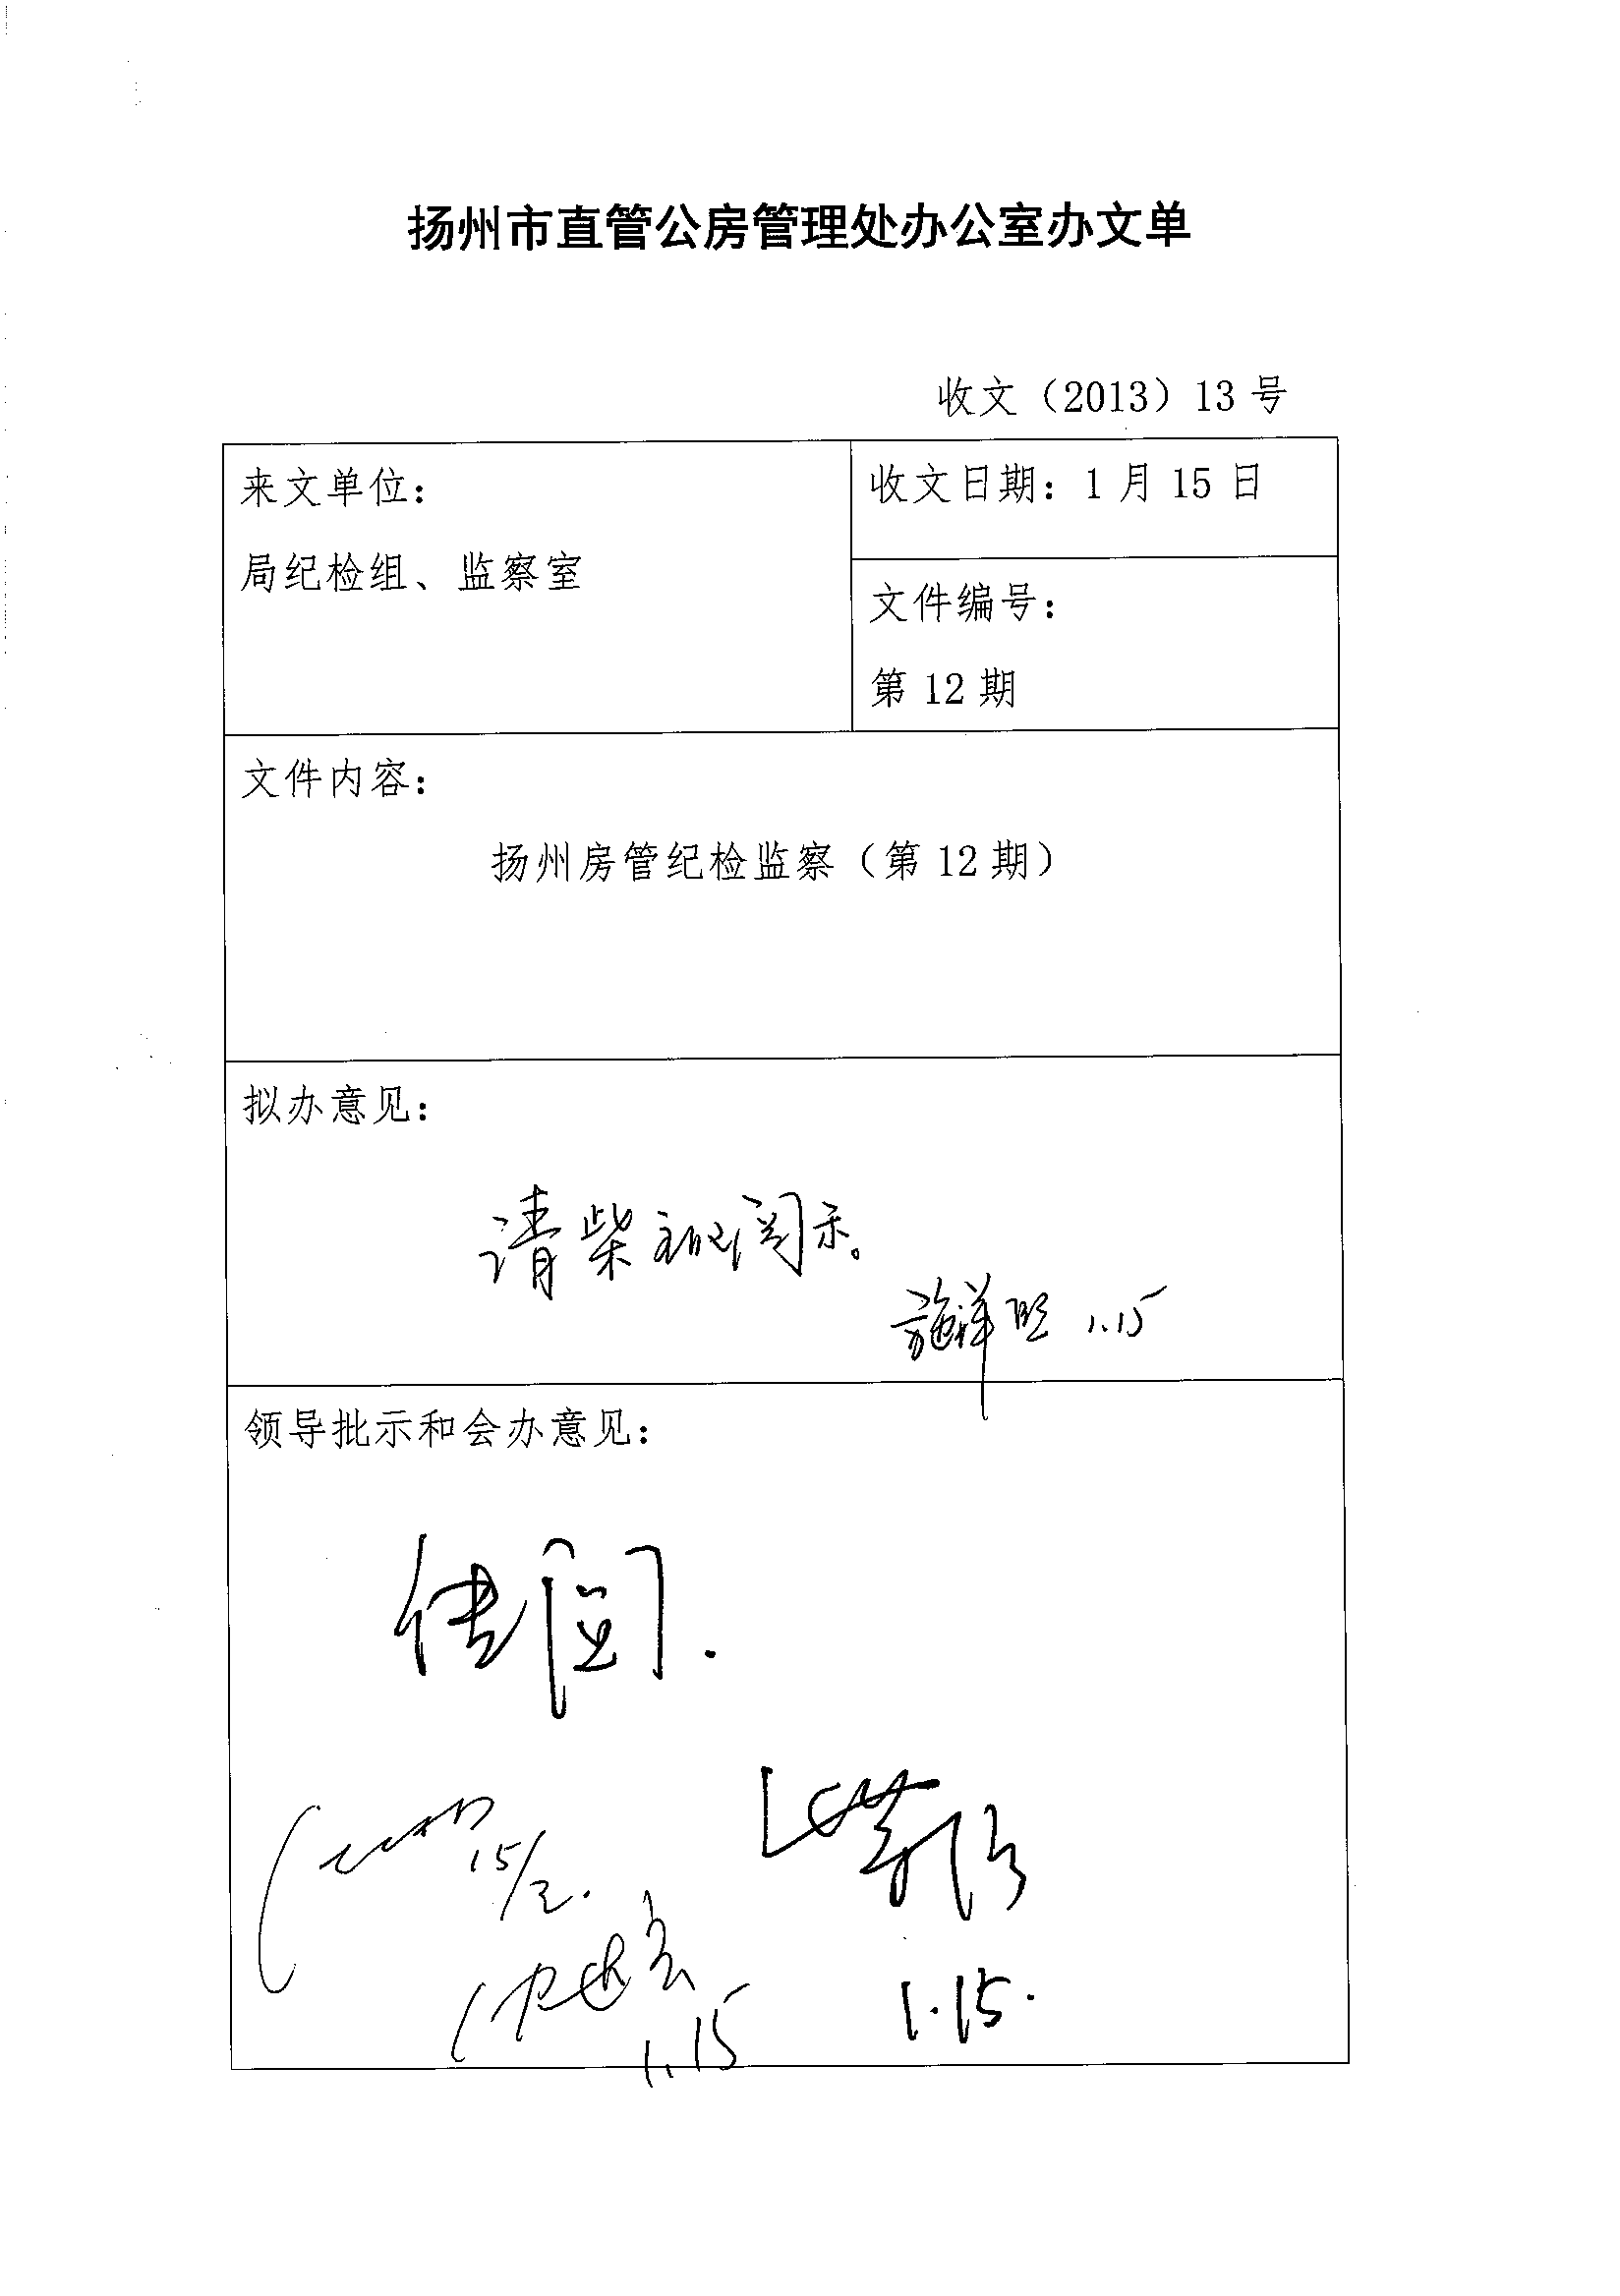 扬州市直管公房管理处办公室办文单
收文（2013）13 号
来文单位：
局纪检组、监察室
收文日期：1 月 15 日
文件编号：
第 12 期
文件内容：
扬州房管纪检监察（第 12 期）
拟办意见：
请柴主任阅示。
1.15
领导批示和会办意见：
传阅.
1.15.
1.15